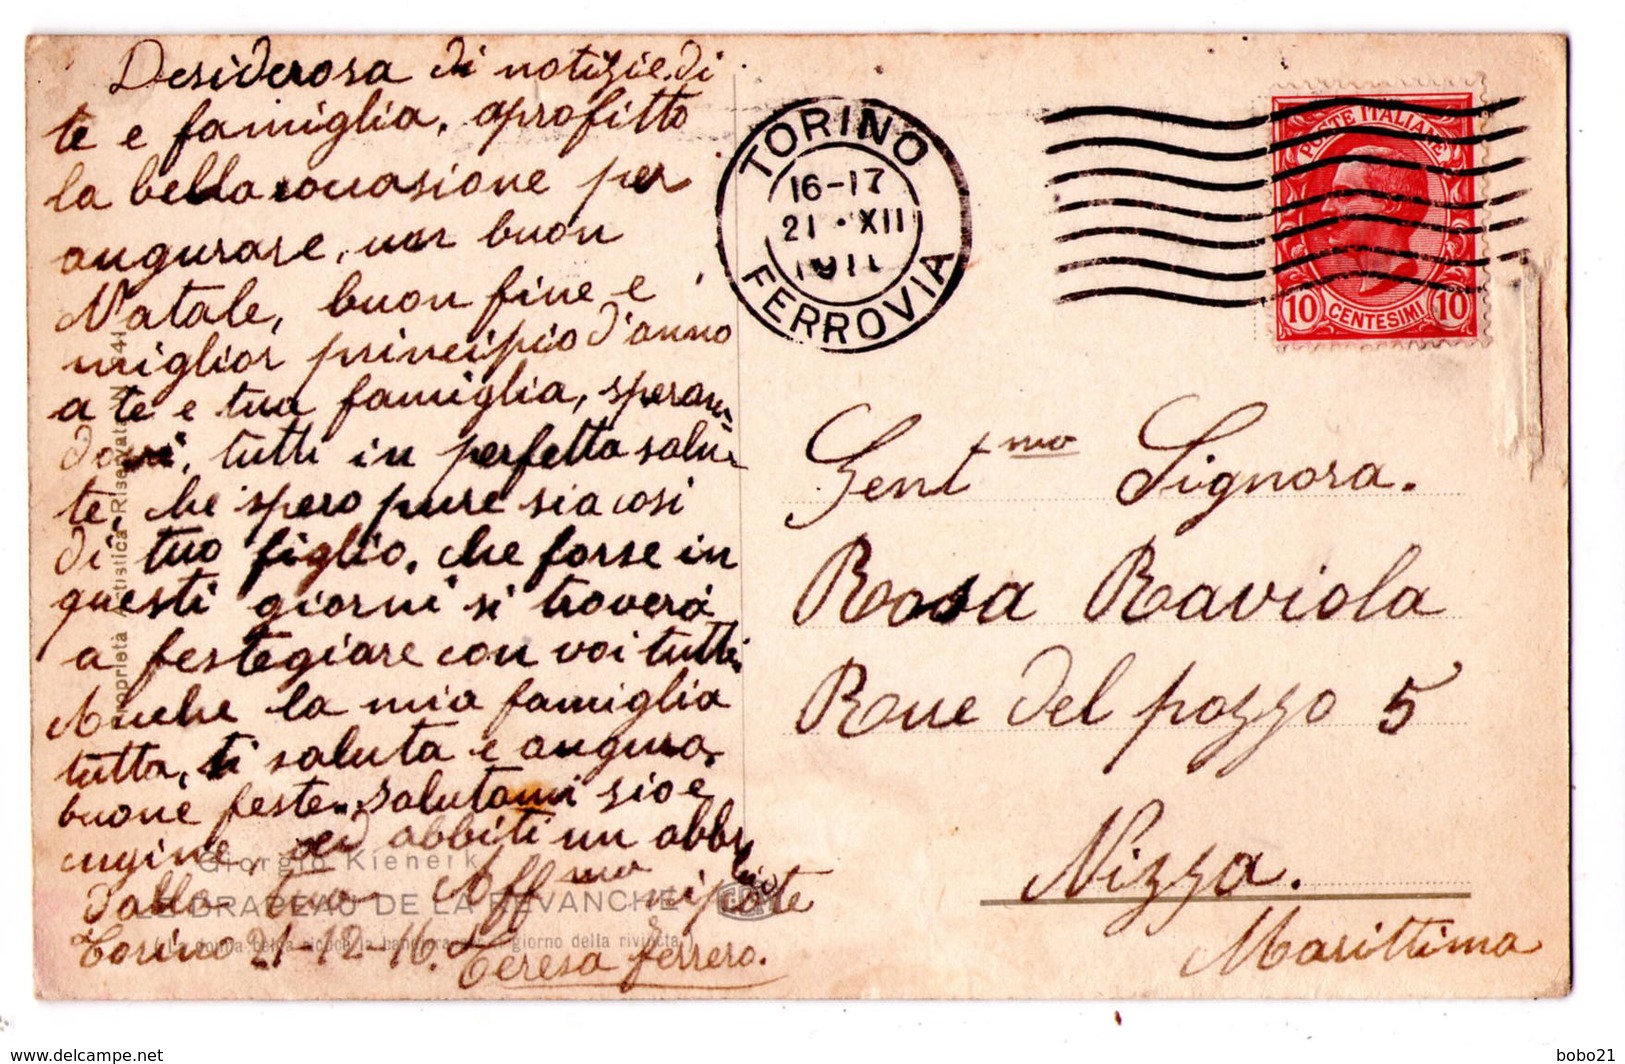 Desiderosa di notizie di
te e famiglia, aprofitto
la bella occasione per
augurare, un buon
Natale, buon fine e
miglior principio d'anno
a te e tua famiglia, speran-
dovi, tutti in perfetta salu-
te, che spero pure sia così
di tuo figlio, che forse in
questi giorni si troverà
a festegiare con voi tutti.
Anche la mia famiglia
tutta, ti saluta e augura
buone feste. Salutami sio e
cugine, ed abbiti un abbr
dalla tua Aff.ma nipote
Torino 21-12-16. Teresa Ferrero.
Proprietà Artistica Riservata
Giorgio Kienerk
LE DRAPEAU DE LA REVANCHE
TORINO
16-17
21 · XII
FERROVIA
POSTE ITALIANE
10 CENTESIMI 10
Gent.mo Signora.
Rosa Raviola
Rue del pozzo 5
Nizza.
Marittima
delcampe.net
bobo21